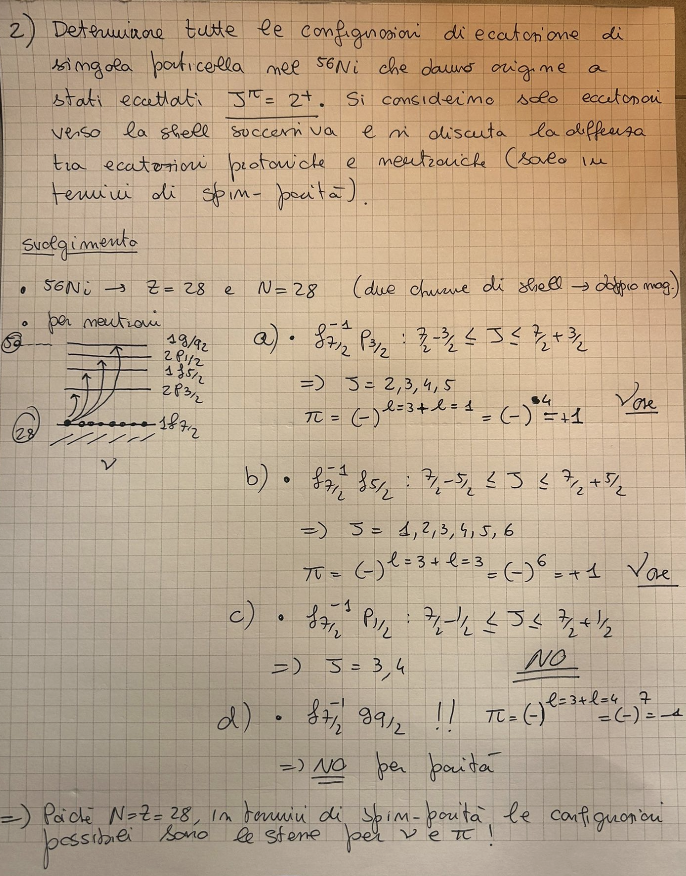 2) Determinare tutte le configurazioni di eccitazione di
singola particella nel ⁵⁶Ni che danno origine a
stati eccitati J^π = 2⁺. Si considerino solo eccitazioni
verso la shell successiva e si discuta la differenza
tra eccitazioni protoniche e neutroniche (solo in
termini di spin-parità).
svolgimento
• 56Ni → Z = 28 e N = 28 (due chiusure di shell → doppio mag.)
• per neutroni
50
1g9/2
2p1/2
1f5/2
2p3/2
28
1f7/2
ν
a) • f7/2⁻¹ p3/2 : 7/2-3/2 ≤ J ≤ 7/2+3/2
=> J = 2,3,4,5
π = (-)^l=3+l=1 = (-)^4 = +1 Vale
b) • f7/2⁻¹ f5/2 : 7/2-5/2 ≤ J ≤ 7/2+5/2
=> J = 1,2,3,4,5,6
π = (-)^l=3+l=3 = (-)^6 = +1 Vale
c) • f7/2⁻¹ p1/2 : 7/2-1/2 ≤ J ≤ 7/2+1/2
=> J = 3,4 NO
d) • f7/2⁻¹ g9/2 !! π = (-)^l=3+l=4 = (-)^7 = -1
=> NO per parità
=> Poiché N=Z=28, in termini di spin-parità le configurazioni
possibili sono le stesse per ν e π !